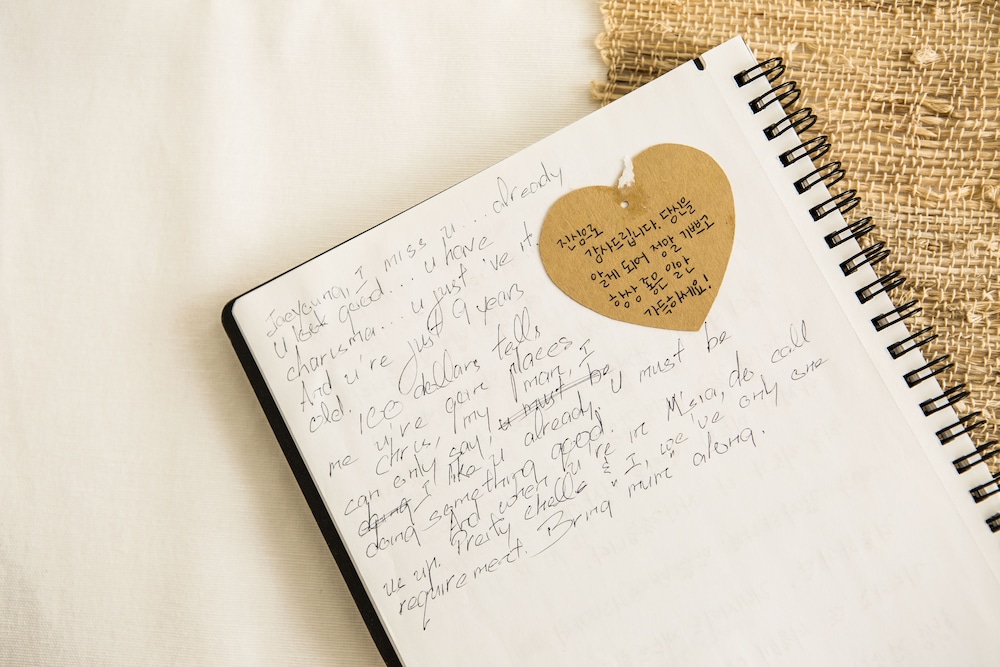 Jaeyoung, I miss u... already
u look good... u have
charisma... u just 've it.
And u're just 9 years
old. 100 dollars tells
me u're goin places
Chris, my man, I
can only say, u must be
doing I like u already, u must be
doing something good.
And when u're in M'sia, do call
us up. Pretty chelle & I, we've only one
requirement. Bring "mum" along.
진심으로
감사드립니다. 당신을
알게 되어 정말 기쁘고
항상 좋은 일만
가득하세요!